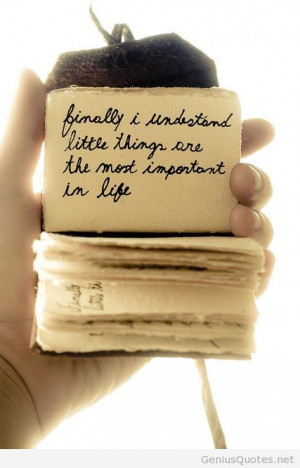 finally i undestand
little things are
the most important
in life
GeniusQuotes.net